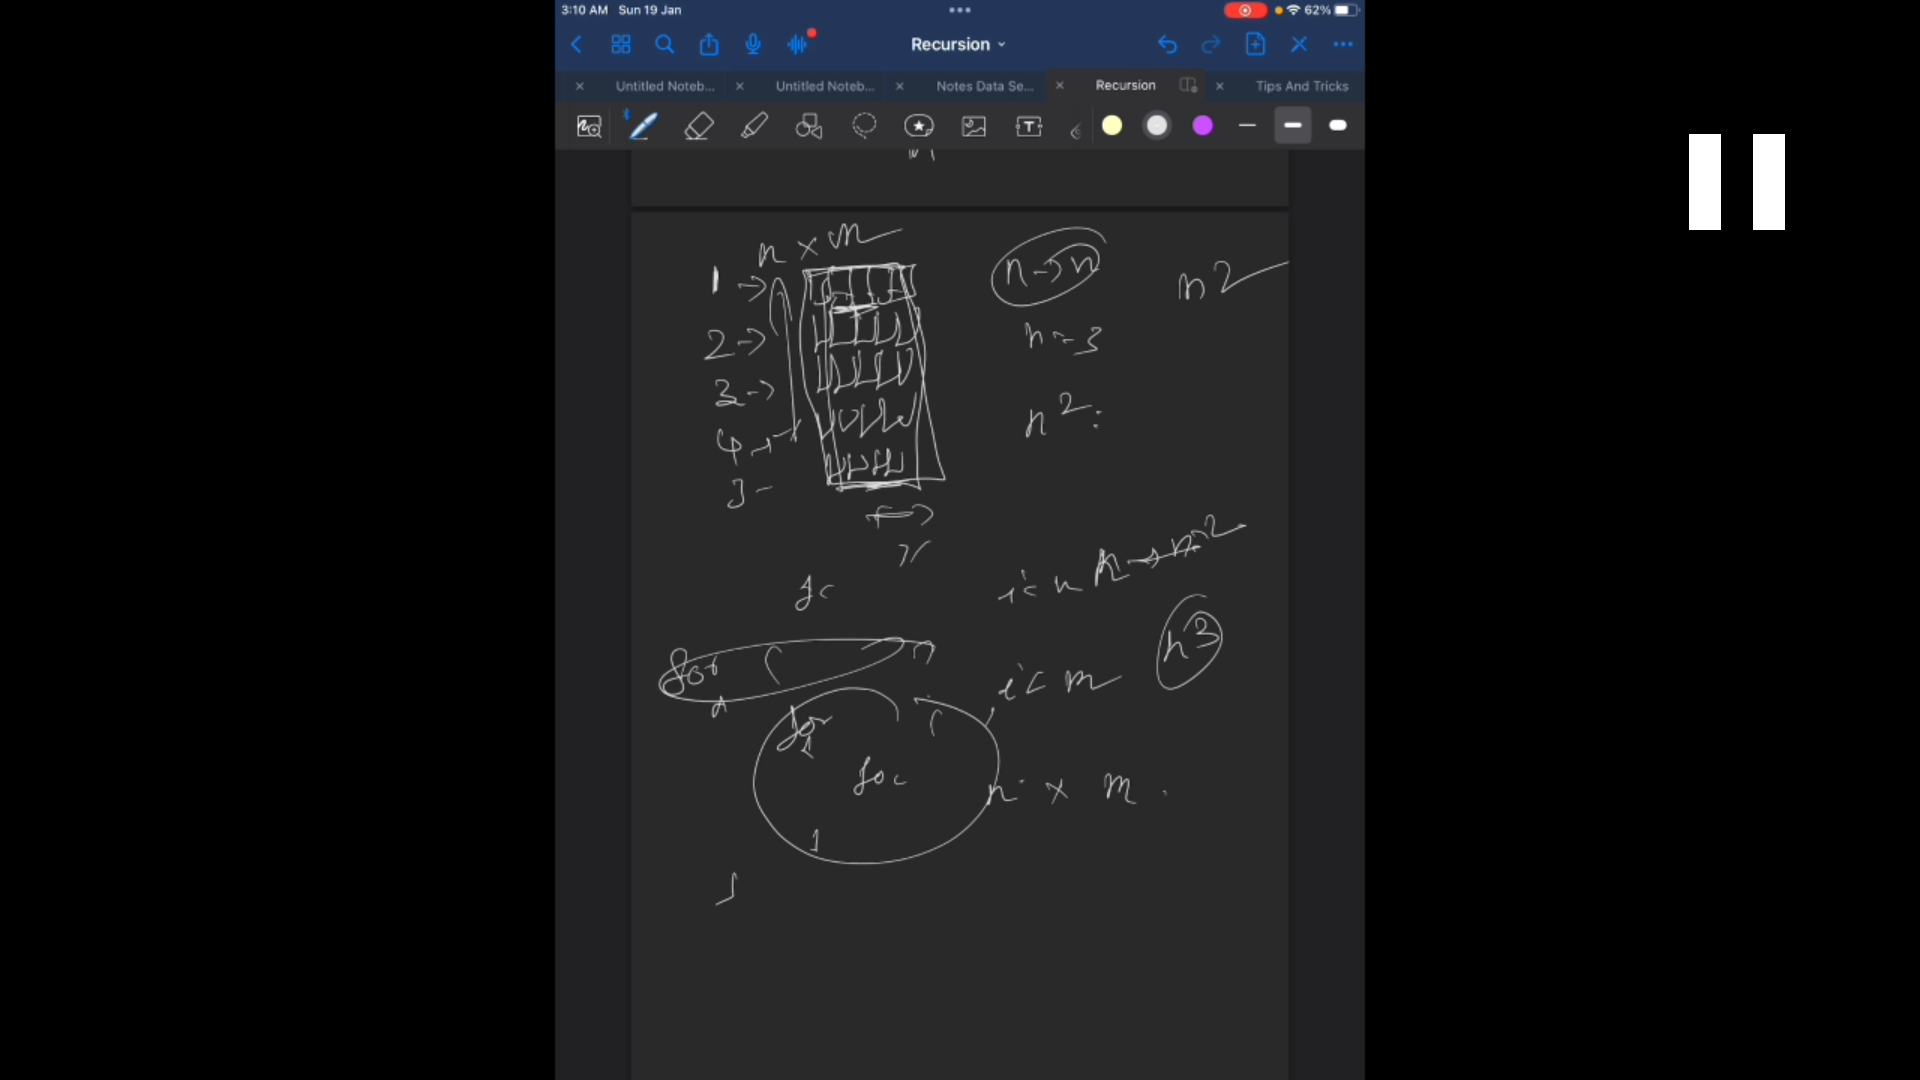 3:10 AM Sun 19 Jan
62%
Recursion
Untitled Noteb...
Untitled Noteb...
Notes Data Se...
Recursion
Tips And Tricks
n × m
1 →
2 →
3 →
4 →
n → n
n2
n = 3
n2 :
i < n
n3
for (
i < m
for (
for
n × m .